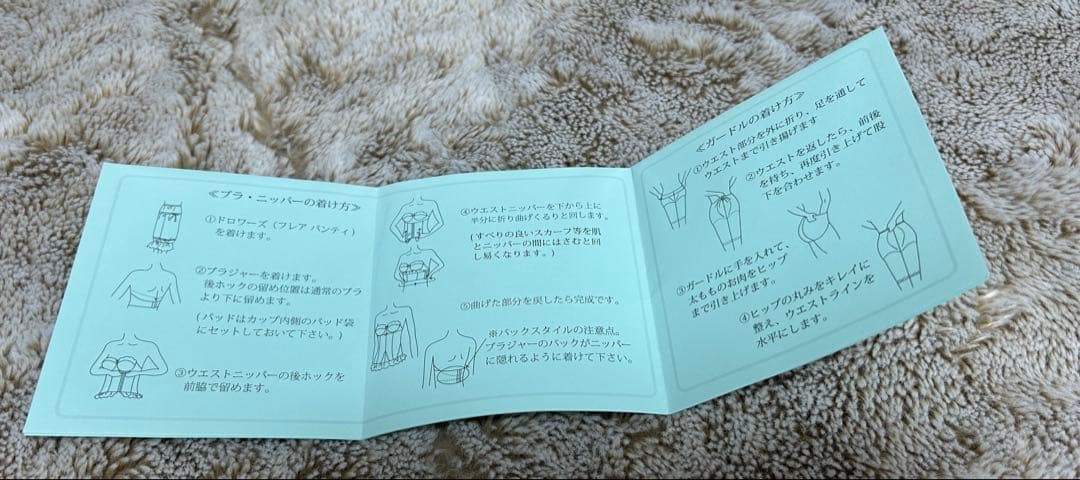 ≪ブラ・ニッパーの着け方≫
①ドロワーズ（フレア パンティ）
を着けます。
②ブラジャーを着けます。
後ホックの留め位置は通常のブラ
より下に留めます。
(パッドはカップ内側のパッド袋
にセットしておいて下さい。)
③ウエストニッパーの後ホックを
前脇で留めます。
④ウエストニッパーを下から上に
半分に折り曲げくるりと回します。
(すべりの良いスカーフ等を肌
とニッパーの間にはさむと回
し易くなります。)
⑤曲げた部分を戻したら完成です。
※バックスタイルの注意点。
ブラジャーのバックがニッパー
に隠れるように着けて下さい。
≪ガードルの着け方≫
①ウエスト部分を外に折り、足を通して
ウエストまで引き揚げます
②ウエストを返したら、前後
を持ち、再度引き上げて股
下を合わせます。
③ガードルに手を入れて、
太もものお肉をヒップ
まで引き上げます。
④ヒップの丸みをキレイに
整え、ウエストラインを
水平にします。